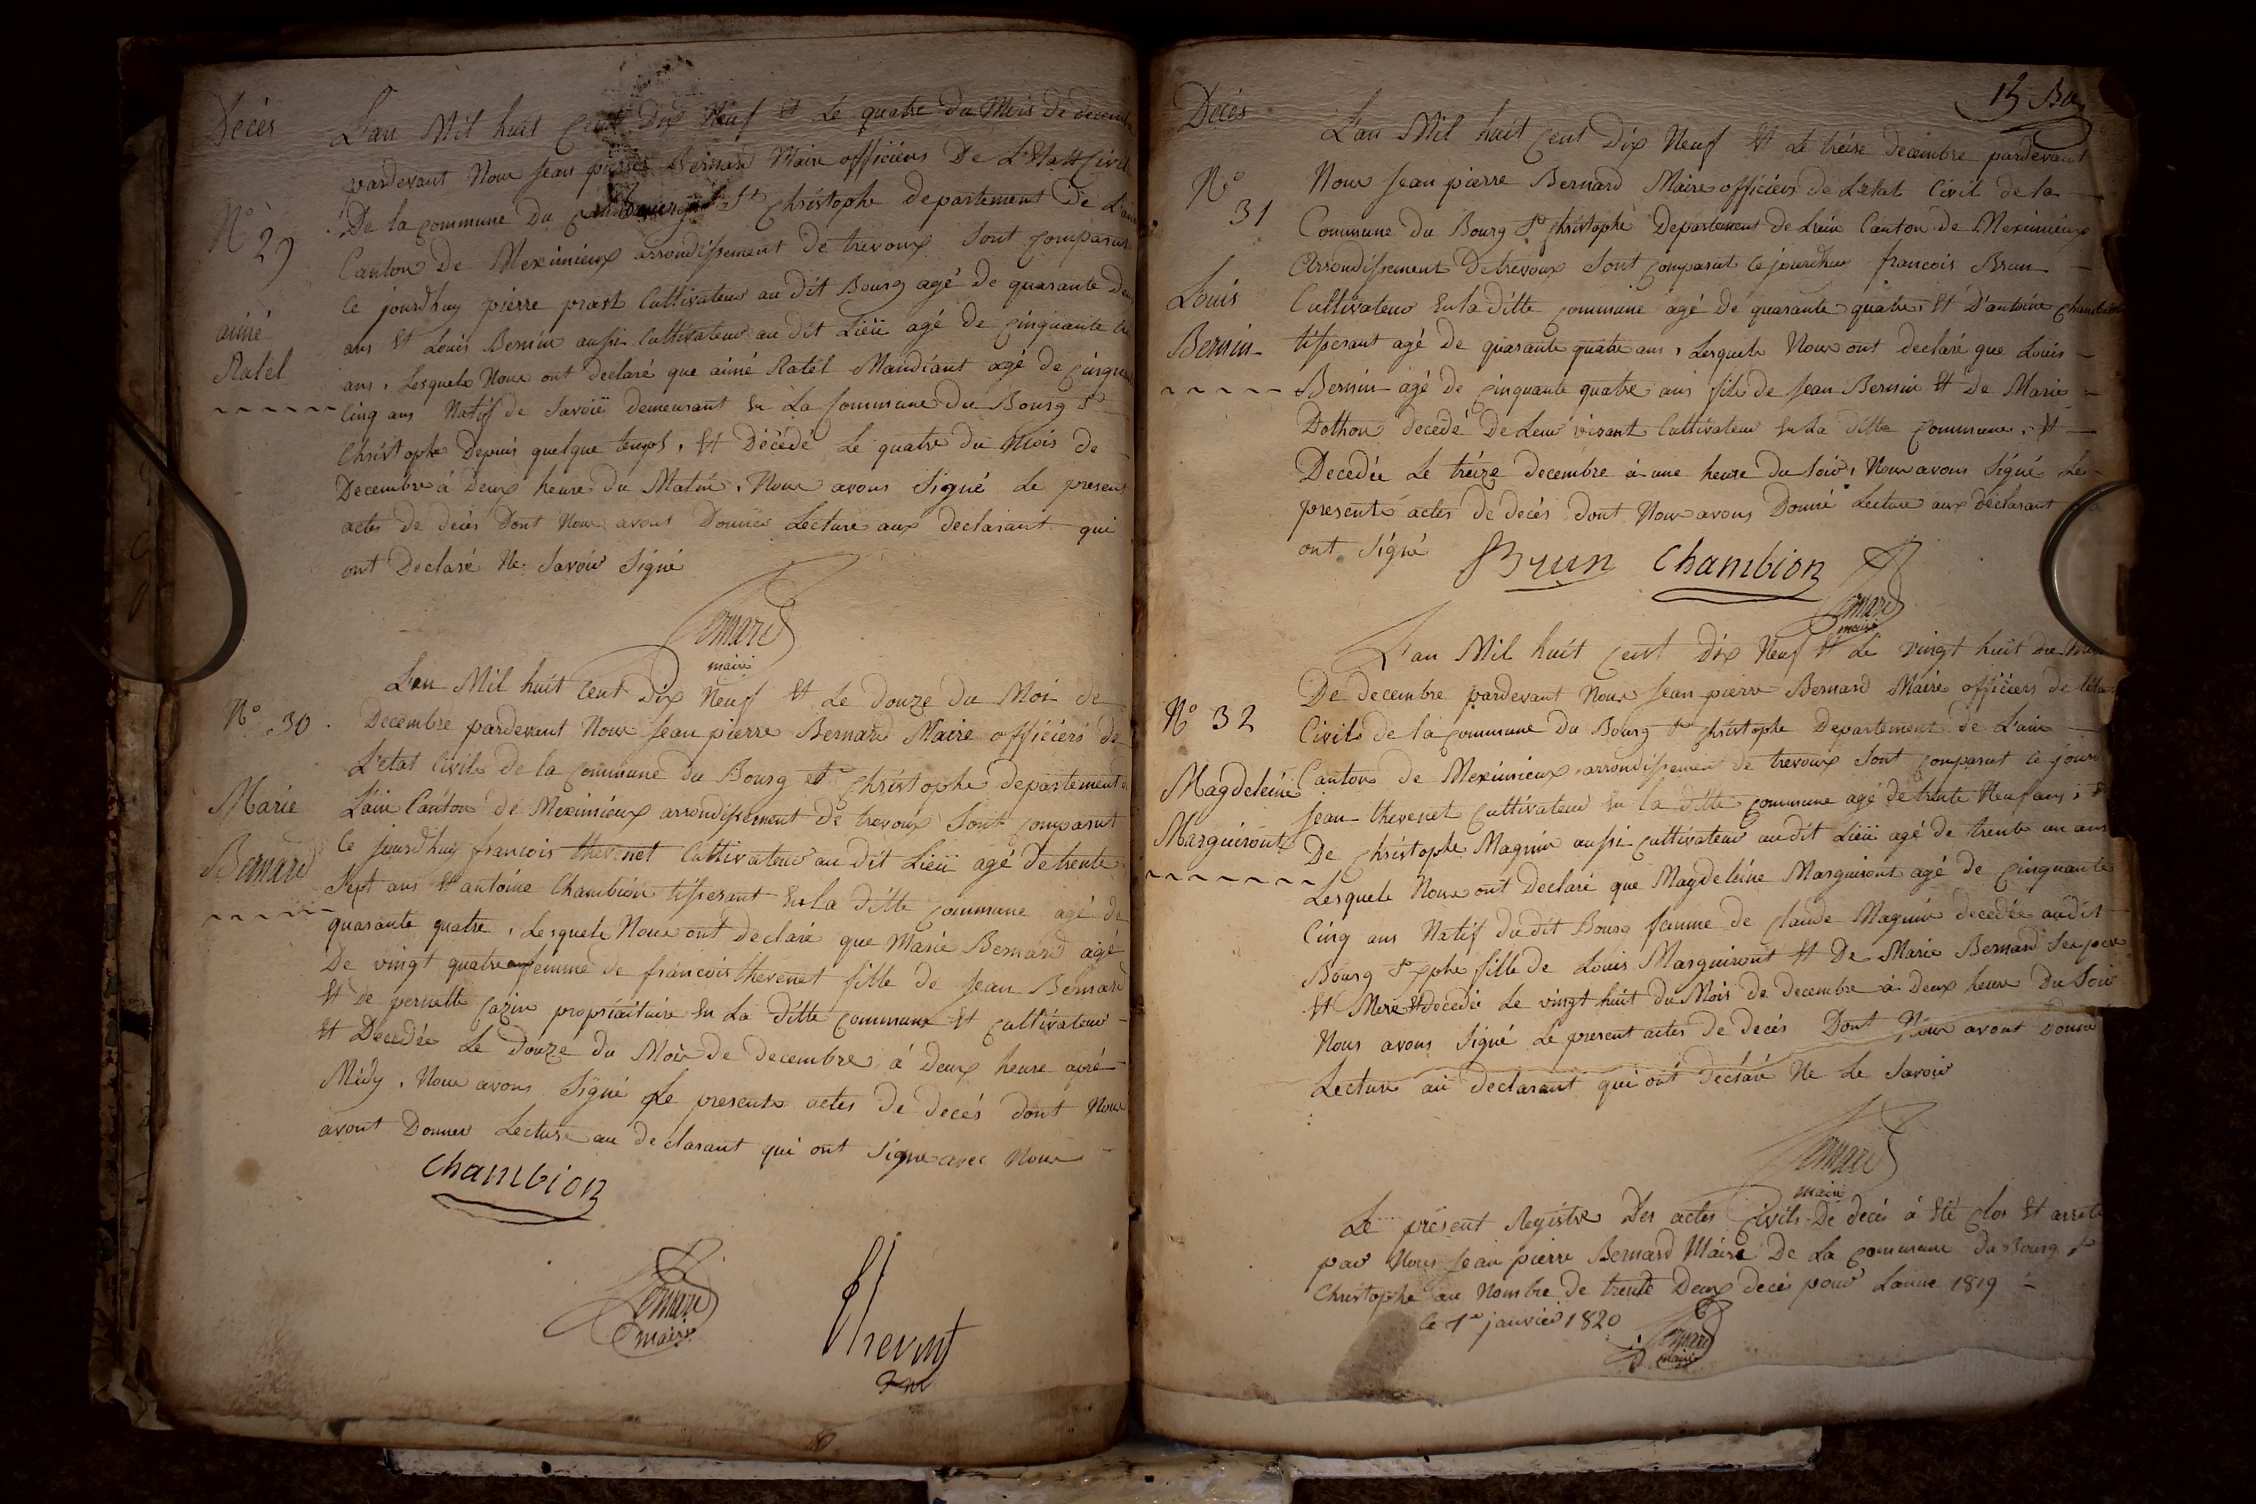 Decès
L'an Mil huit Cent Dix Neuf Et Le quatre du Mois de decemb
pardevant Nous Jean pierre Bernard Maire officiers De L'Etat Civil
N° 29
De la commune du St Christophe departement De L'ain
Canton De Meximieux arrondissement De trevoux Sont Comparut
Ce jourdhuy pierre prost Cultivateur au dit Bourg agé de quarante Deux
aimé
Ratel
ans Et Louis Bernin aussi Cultivateur au dit Lieü agé de Cinquante
ans, Lesquels Nous ont declaré que aimé Ratel Mandiant agé de Cinquante
Cinq ans Natif de Savoië demeurant En La Commune Du Bourg St
Christophe Depuis quelque temps, Et Décédé Le quatre du Mois de
Decembre à Deux heure du Matin. Nous avons Signé Le present
actes de decès Dont Nous avons Donner Lecture aux declarant qui
ont Declaré Ne Savoir Signé
Bernard
maire
L'an Mil huit Cent Dix Neuf Et Le Douze Du Moi de
N° 30.
Decembre pardevant Nous Jean pierre Bernard Maire officiers de
L'etat Civile de la Commune du Bourg St Christophe departement
Marie
Bernard
L'ain Canton de Meximieux arrondissement De trevoux Sont Comparut
Ce jourdhuy francois thevenet Cultivateur au dit Lieü agé De trente
Sept ans Et antoine Chambion tisserant En la ditte Commune agé de
quarante quatre, Lesquels Nous ont declaré que Marie Bernard agé
De vingt quatre ans femme de francois thevenet fille de Jean Bernard
Et de pernette Cazin propriaitaire En La ditte Commune Et Cultivateur
Et Decedée Le Douze du Mois de decembre à Deux heure apré
Midy. Nous avons Signé Le presents actes de decès dont Nous
avont Donner Lecture au declarant qui ont Signe avec Nous
Chambion
Bernard
maire
Thevenet
Decès
L'an Mil huit Cent Dix Neuf Et Le treise decembre pardevant
N° 31
Nous Jean pierre Bernard Maire officiers de L'etat Civil de la
Commune du Bourg St Christophe Departement de L'ain Canton de Meximieux
Arrondissement De trevoux Sont Comparut Ce jourdhuy francois Brun
Louis
Bernin
Cultivateur En la ditte Commune agé de quarante quatre, Et D'antoine Chambion
tisserant agé de quarante quatre ans, Lesquels Nous ont declaré que Louis
Bernin agé de Cinquante quatre ans fils de Jean Bernin Et de Marie
Dothon decedé De Leur vivant Cultivateur En La ditte Commune, Et
Decedée Le treize decembre à une heure du Soir, Nous avons Signé Les
presents actes de decès dont Nous avons Donné Lecture aux declarant
ont Signé
Brun Chambion
Bernard
maire
L'an Mil huit Cent Dix Neuf Et Le vingt huit du
N° 32
De decembre pardevant Nous Jean pierre Bernard Maire officiers de L'eta
Civile de la Commune du Bourg St Christophe Departement de L'ain
Magdeleine
Marguiront
Canton de Meximieux arrondissement de trevoux Sont Comparut Ce jour
Jean thevenet Cultivateur En la ditte Commune agé de trente Neuf ans, Et
De Christophe Magnin aussi Cultivateur au dit Lieü agé de trente un ans
Lesquels Nous ont Declaré que Magdeleine Marguiront agé de Cinquante
Cinq ans Natif du dit Bourg femme de Claude Magnin decedée au dit
Bourg St Xphe fille de Louis Marguiront Et De Marie Bernard Ses pere
Et Mere Et decedée Le vingt huit du Mois de decembre à Deux heure Du Soir
Nous avons Signé Le present actes de decès Dont Nous avont Donné
Lecture au declarant qui ont declaré Ne Le Savoir
Bernard
maire
Le présent Registre Des actes Civils De decès à Eté Clos Et arreté
par Nous Jean pierre Bernard Maire De La Commune du Bourg St
Christophe au Nombre de trente Deux decès pour L'année 1819
Ce 1er janvier 1820
Bernard
maire